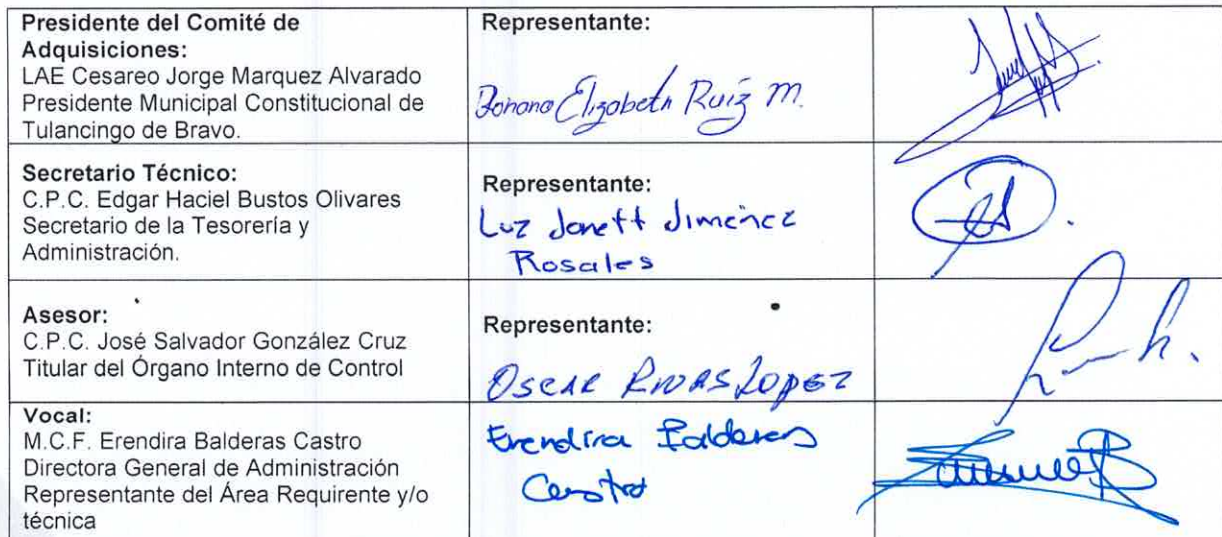 Presidente del Comité de
Adquisiciones:
LAE Cesareo Jorge Marquez Alvarado
Presidente Municipal Constitucional de
Tulancingo de Bravo.
Representante:
Elizabeth Ruiz M.
Secretario Técnico:
C.P.C. Edgar Haciel Bustos Olivares
Secretario de la Tesorería y
Administración.
Representante:
Luz Janett Jimenez
Rosales
Asesor:
C.P.C. José Salvador González Cruz
Titular del Órgano Interno de Control
Representante:
OSCAR RIVAS LOPEZ
Vocal:
M.C.F. Erendira Balderas Castro
Directora General de Administración
Representante del Área Requirente y/o
técnica
Erendira Balderas
Castro